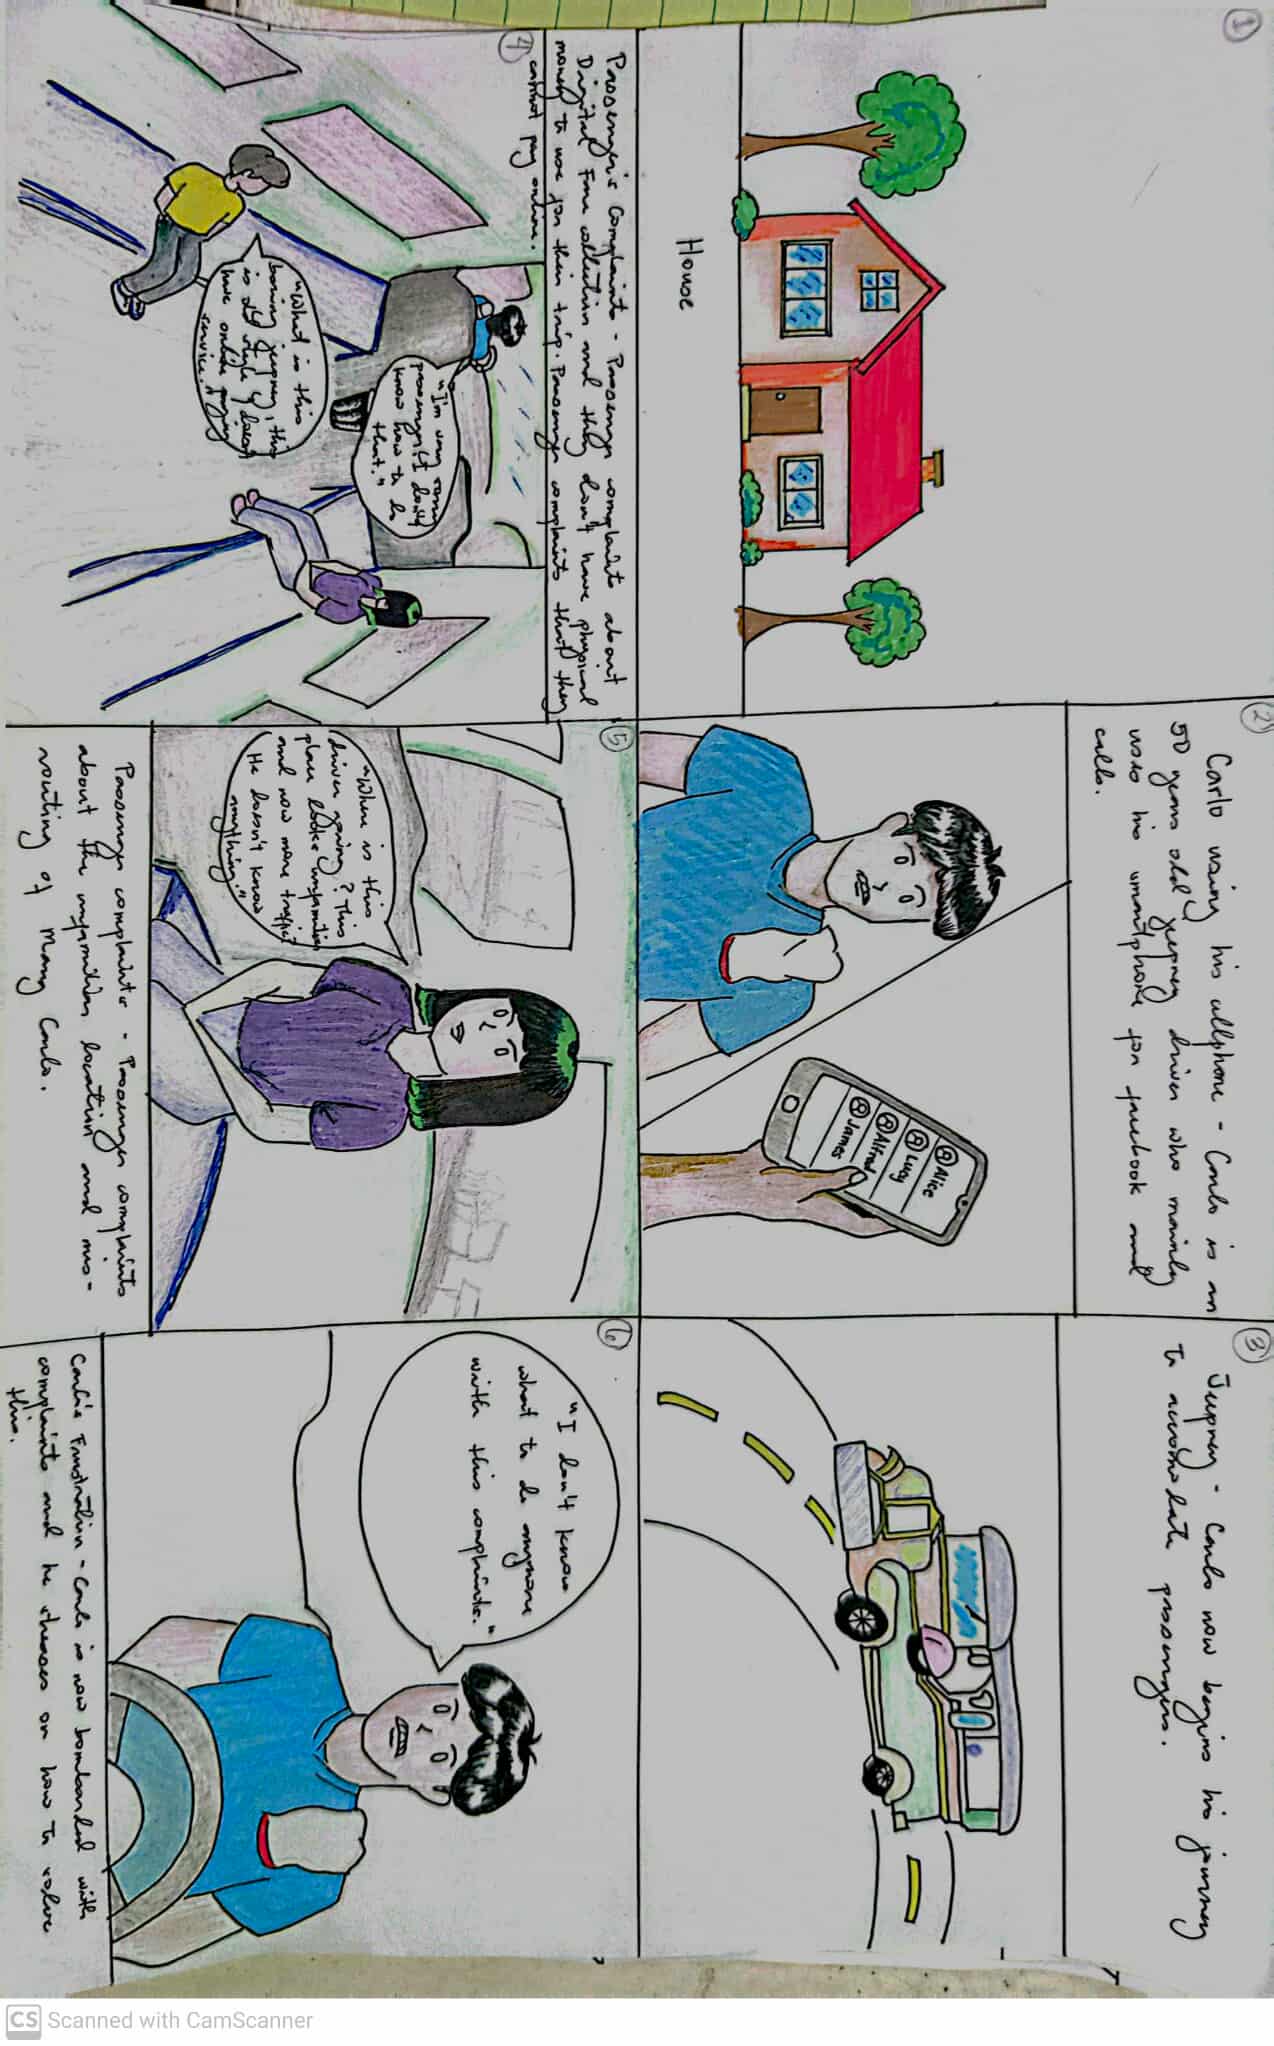 1
House
2
Carlo using his cellphone - Carlo is an
50 years old jeepney driver who mainly
uses his smartphone for facebook and
calls.
Alice
Lucy
Alfred
James
3
Jeepney - Carlo now begins his journey
to accomodate passengers.
Passenger's Complaints - Passenger complaints about
Digital Fare collection and they don't have physical
money to use for their trip. Passenger complaints that they
cannot pay online.
4
"I'm very sorry
passenger I don't
know how to do
that."
"What is this
boring jeepney, this
is old style & doesn't
have online paying
service."
5
"Where is this
driver going? This
place looks unfamiliar
and now more traffic!
He doesn't know
anything."
Passenger complaints - Passenger complaints
about the unfamiliar location and mis-
routing of Mang Carlo.
6
"I don't know
what to do anymore
with this complaints."
Carlo's Frustration - Carlo is now bombarded with
complaints and he stresses on how to solve
this.
CS Scanned with CamScanner